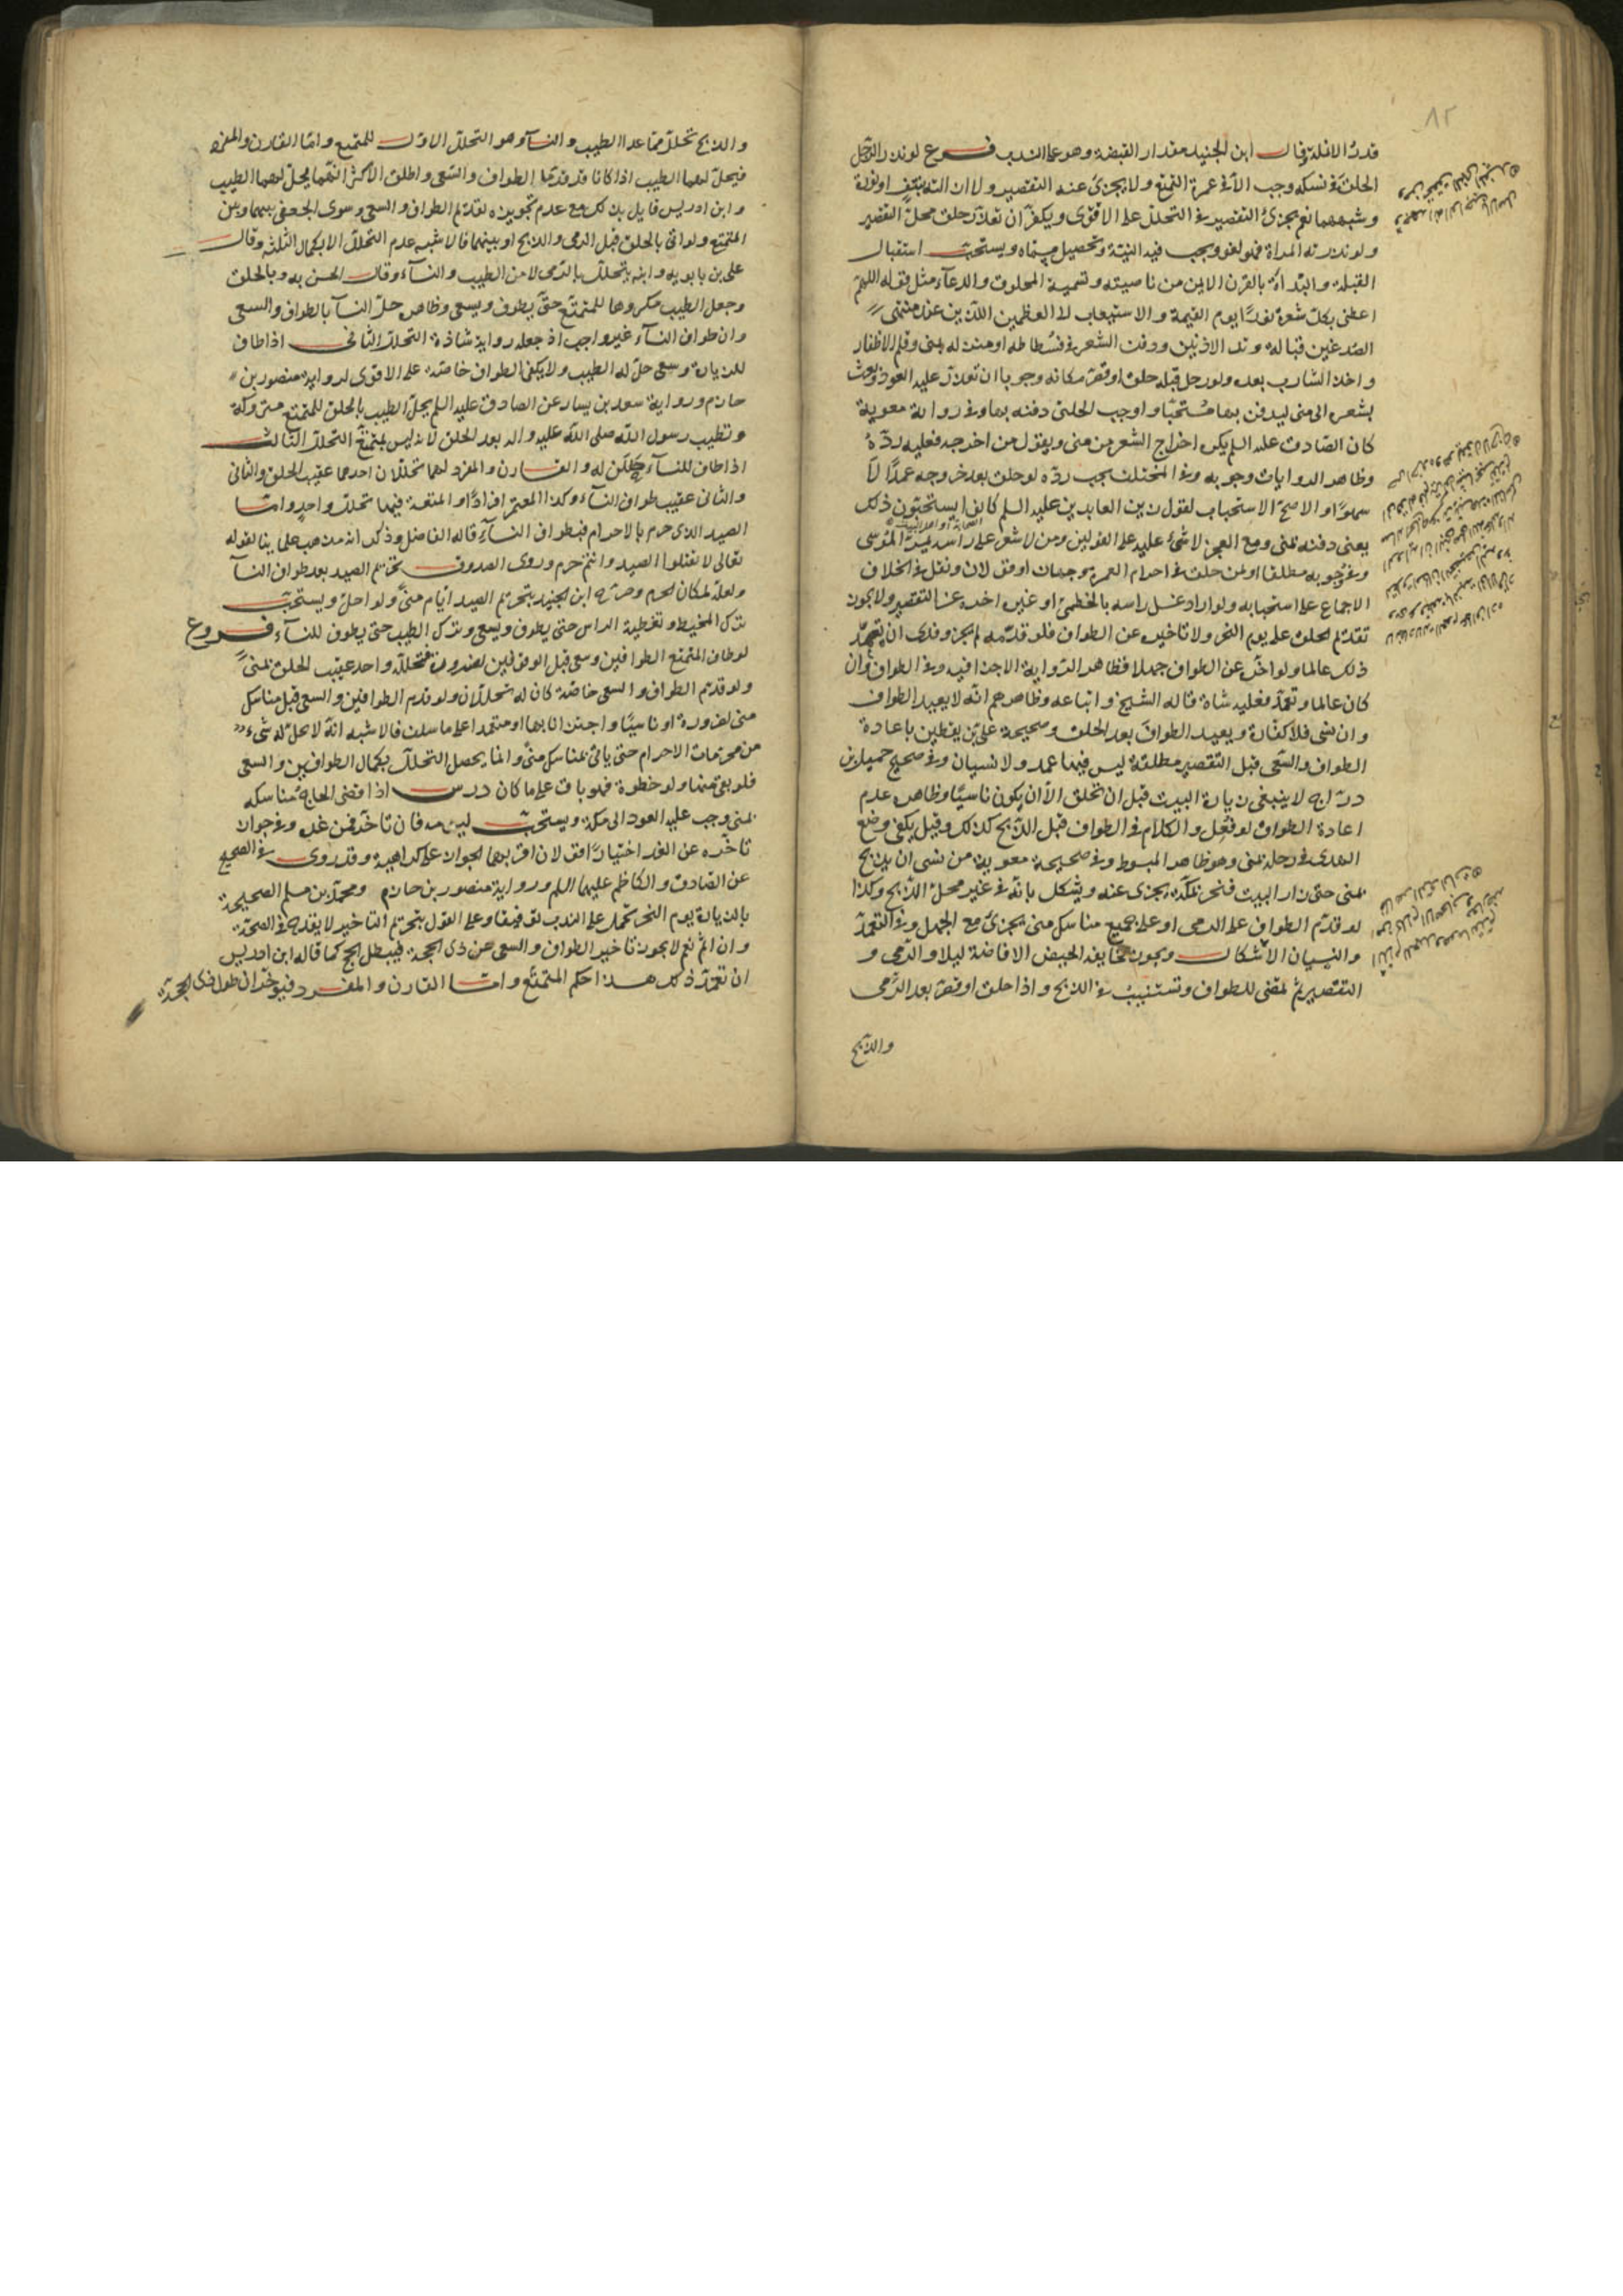 قدر الانملة وقال ابن الجنيد مقدار القبضة وهو على الندب فروع لو نذر الرجل
الحلق في نسكه وجب الا في عمرة التمتع ولا يجزئ عنه التقصير ولا ازالته بنتف او نورة
وشبههما نعم يجزئ التقصير في التحلل على الاقوى ويكفر ان تعذر حلق محل التقصير
ولو نذرته المراة فهو لغو ويجب فيه النية وتحصيل مسماه ويستحب استقبال
القبلة والبداة بالقرن الايمن من ناصيته وتسمية المحلوق والدعاء مثل قوله اللهم
اعطني بكل شعرة نورا يوم القيمة والاستيعاب لا العظمين اللذين عند منتهى
الصدغين قبالة وتد الاذنين ودفن الشعر في فسطاطه او منزله بمنى وقلم الاظفار
واخذ الشارب بعده ولو رحل قبله حلق او قصر مكانه وجوبا ان تعذر عليه العود وبعث
بشعره الى منى ليدفن بها مستحبا واوجب الحلبي دفنه بها وفي رواية معوية
كان الصادق عليه السلم يكره اخراج الشعر من منى ويقول من اخرجه فعليه رده
وظاهر الروايات وجوبه وفي المختلف يجب رده لو حلق بعد خروجه عمدا لا
سهوا والاصح الاستحباب لقول زين العابدين عليه السلم كانوا يستحبون ذلك
يعني دفنه بمنى ومع العجز لا شئ عليه على القولين ومن لا شعر على راسه يمر الموسى
وفي وجوبه مطلقا او لمن حلق في احرام العمرة وجهان او قولان ونقل في الخلاف
الاجماع على استحبابه ولو اراد غسل راسه بالخطمي او غيره اخره عن التقصير ولا يجوز
تقديم الحلق على يوم النحر ولا تاخيره عن الطواف فلو قدمه لم يجز وفدى ان تعمد
ذلك عالما ولو اخر عن الطواف جهلا فظاهر الرواية الاجزا فيه وفي الطواف وان
كان عالما وتعمد فعليه شاة قاله الشيخ واتباعه وظاهرهم انه لا يعيد الطواف
وان نسى فلا كفارة ويعيد الطواف بعد الحلق وصحيحة علي بن يقطين باعادة
الطواف والسعي قبل التقصير مطلقة ليس فيها عمد ولا نسيان وفي صحيح جميل بن
دراج لا ينبغي زيارة البيت قبل ان تحلق الا ان يكون ناسيا وظاهره عدم
اعادة الطواف لو فعل والكلام في الطواف قبل الذبح كذلك وقيل يكفي وضع
الهدى في رحله بمنى وهو ظاهر المبسوط وفي صحيحة معوية من نسى ان يذبح
بمنى حتى زار البيت فنحر بمكة يجزى عنه ويشكل بانه في غير محل الذبح وكذا
لو قدم الطواف على الرمى او على جميع مناسك منى يجزئ مع الجهل وفي التعمد
والنسيان الاشكال ويجوز لخايف الحيض الافاضة ليلا والرمى و
التقصير ثم تمضي للطواف وتستنيب في الذبح واذا حلق او قصر بعد الرمى
والذبح
والذبح تحلل مما عدا الطيب والنسآء وهو التحلل الاول للمتمتع واما القارن والمفرد
فيحل لهما الطيب اذا كانا قد قدما الطواف والسعى واطلق الاكثر انهما يحل لهما الطيب
وابن ادريس قايل بذلك مع عدم تجويزه لتقديم الطواف والسعى وسوى الجعفي بينهما وبين
المتمتع ولو اتى بالحلق قبل الرمى والذبح او بينهما فالاشبه عدم التحلل الا بكمال الثلثة وقال
علي بن بابويه وابنه يتحلل بالرمى لا من الطيب والنسآء وقال الحسن به وبالحلق
وجعل الطيب مكروها للمتمتع حتى يطوف ويسعى وظاهره حل النسآ بالطواف والسعى
وان طواف النسآء غير واجب اذ جعله رواية شاذة التحلل الثاني اذا طاف
للزيارة وسعى حل له الطيب ولا يكفي الطواف خاصة على الاقوى لرواية منصور بن
حازم ورواية سعد بن يسار عن الصادق عليه السلم يحل الطيب بالحلق للمتمتع متروكة
وتطيب رسول الله صلى الله عليه واله بعد الحلق لانه ليس بمتمتع التحلل الثالث
اذا طاف للنسآء حللن له والقارن والمفرد لهما تحللان احدهما عقيب الحلق والثاني
والثاني عقيب طواف النسآء وكذا المعتمر افرادا واو المتعة فيها تحلل واحد واما
الصيد الذي حرم بالاحرام فبطواف النسآء قاله الفاضل وذكر انه مذهب علمآينا لقوله
تعالى لا تقتلوا الصيد وانتم حرم وروى الصدوق تحريم الصيد بعد طواف النسآ
ولعله لمكان الحرم وصرح ابن الجنيد بتحريم الصيد ايام منى ولو احل ويستحب
ترك المخيط وتغطية الراس حتى يطوف ويسعى وترك الطيب حتى يطوف للنسآء فروع
لو طاف المتمتع الطوافين وسعى قبل الوقوفين لضرورة فتحلله واحد عقيب الحلق بمنى
ولو قدم الطواف والسعى خاصة كان له تحللان ولو قدم الطوافين والسعى قبل مناسك
منى لضرورة او ناسيا واجتزانا بها او متعمدا على ما سلف فالاشبه انه لا يحل له شئ
من محرمات الاحرام حتى ياتى بمناسك منى وانما يحصل التحلل بكمال الطوافين والسعى
فلو بقى منها ولو خطوة فهو باق على ما كان درس اذا قضى الحاج مناسكه
بمنى وجب عليه العود الى مكة ويستحب ليومه فان تاخر فمن غده وفي جواز
تاخره عن الغد اختيارا قولان اقربهما الجواز على كراهية وقد روى في الصحيح
عن الصادق والكاظم عليهما السلم ورواية منصور بن حازم ومحمد بن مسلم الصحيحة
بالزيارة يوم النحر تحمل على الندب توفيقا وعلى القول بتحريم التاخير لا يقدح في الصحة
وان اثم نعم لا يجوز تاخير الطواف والسعى عن ذى الحجة فيبطل الحج كما قاله ابن ادريس
ان تعمد ذلك هذا حكم المتمتع واما القارن والمفرد فيؤخران طول ذى الحجة